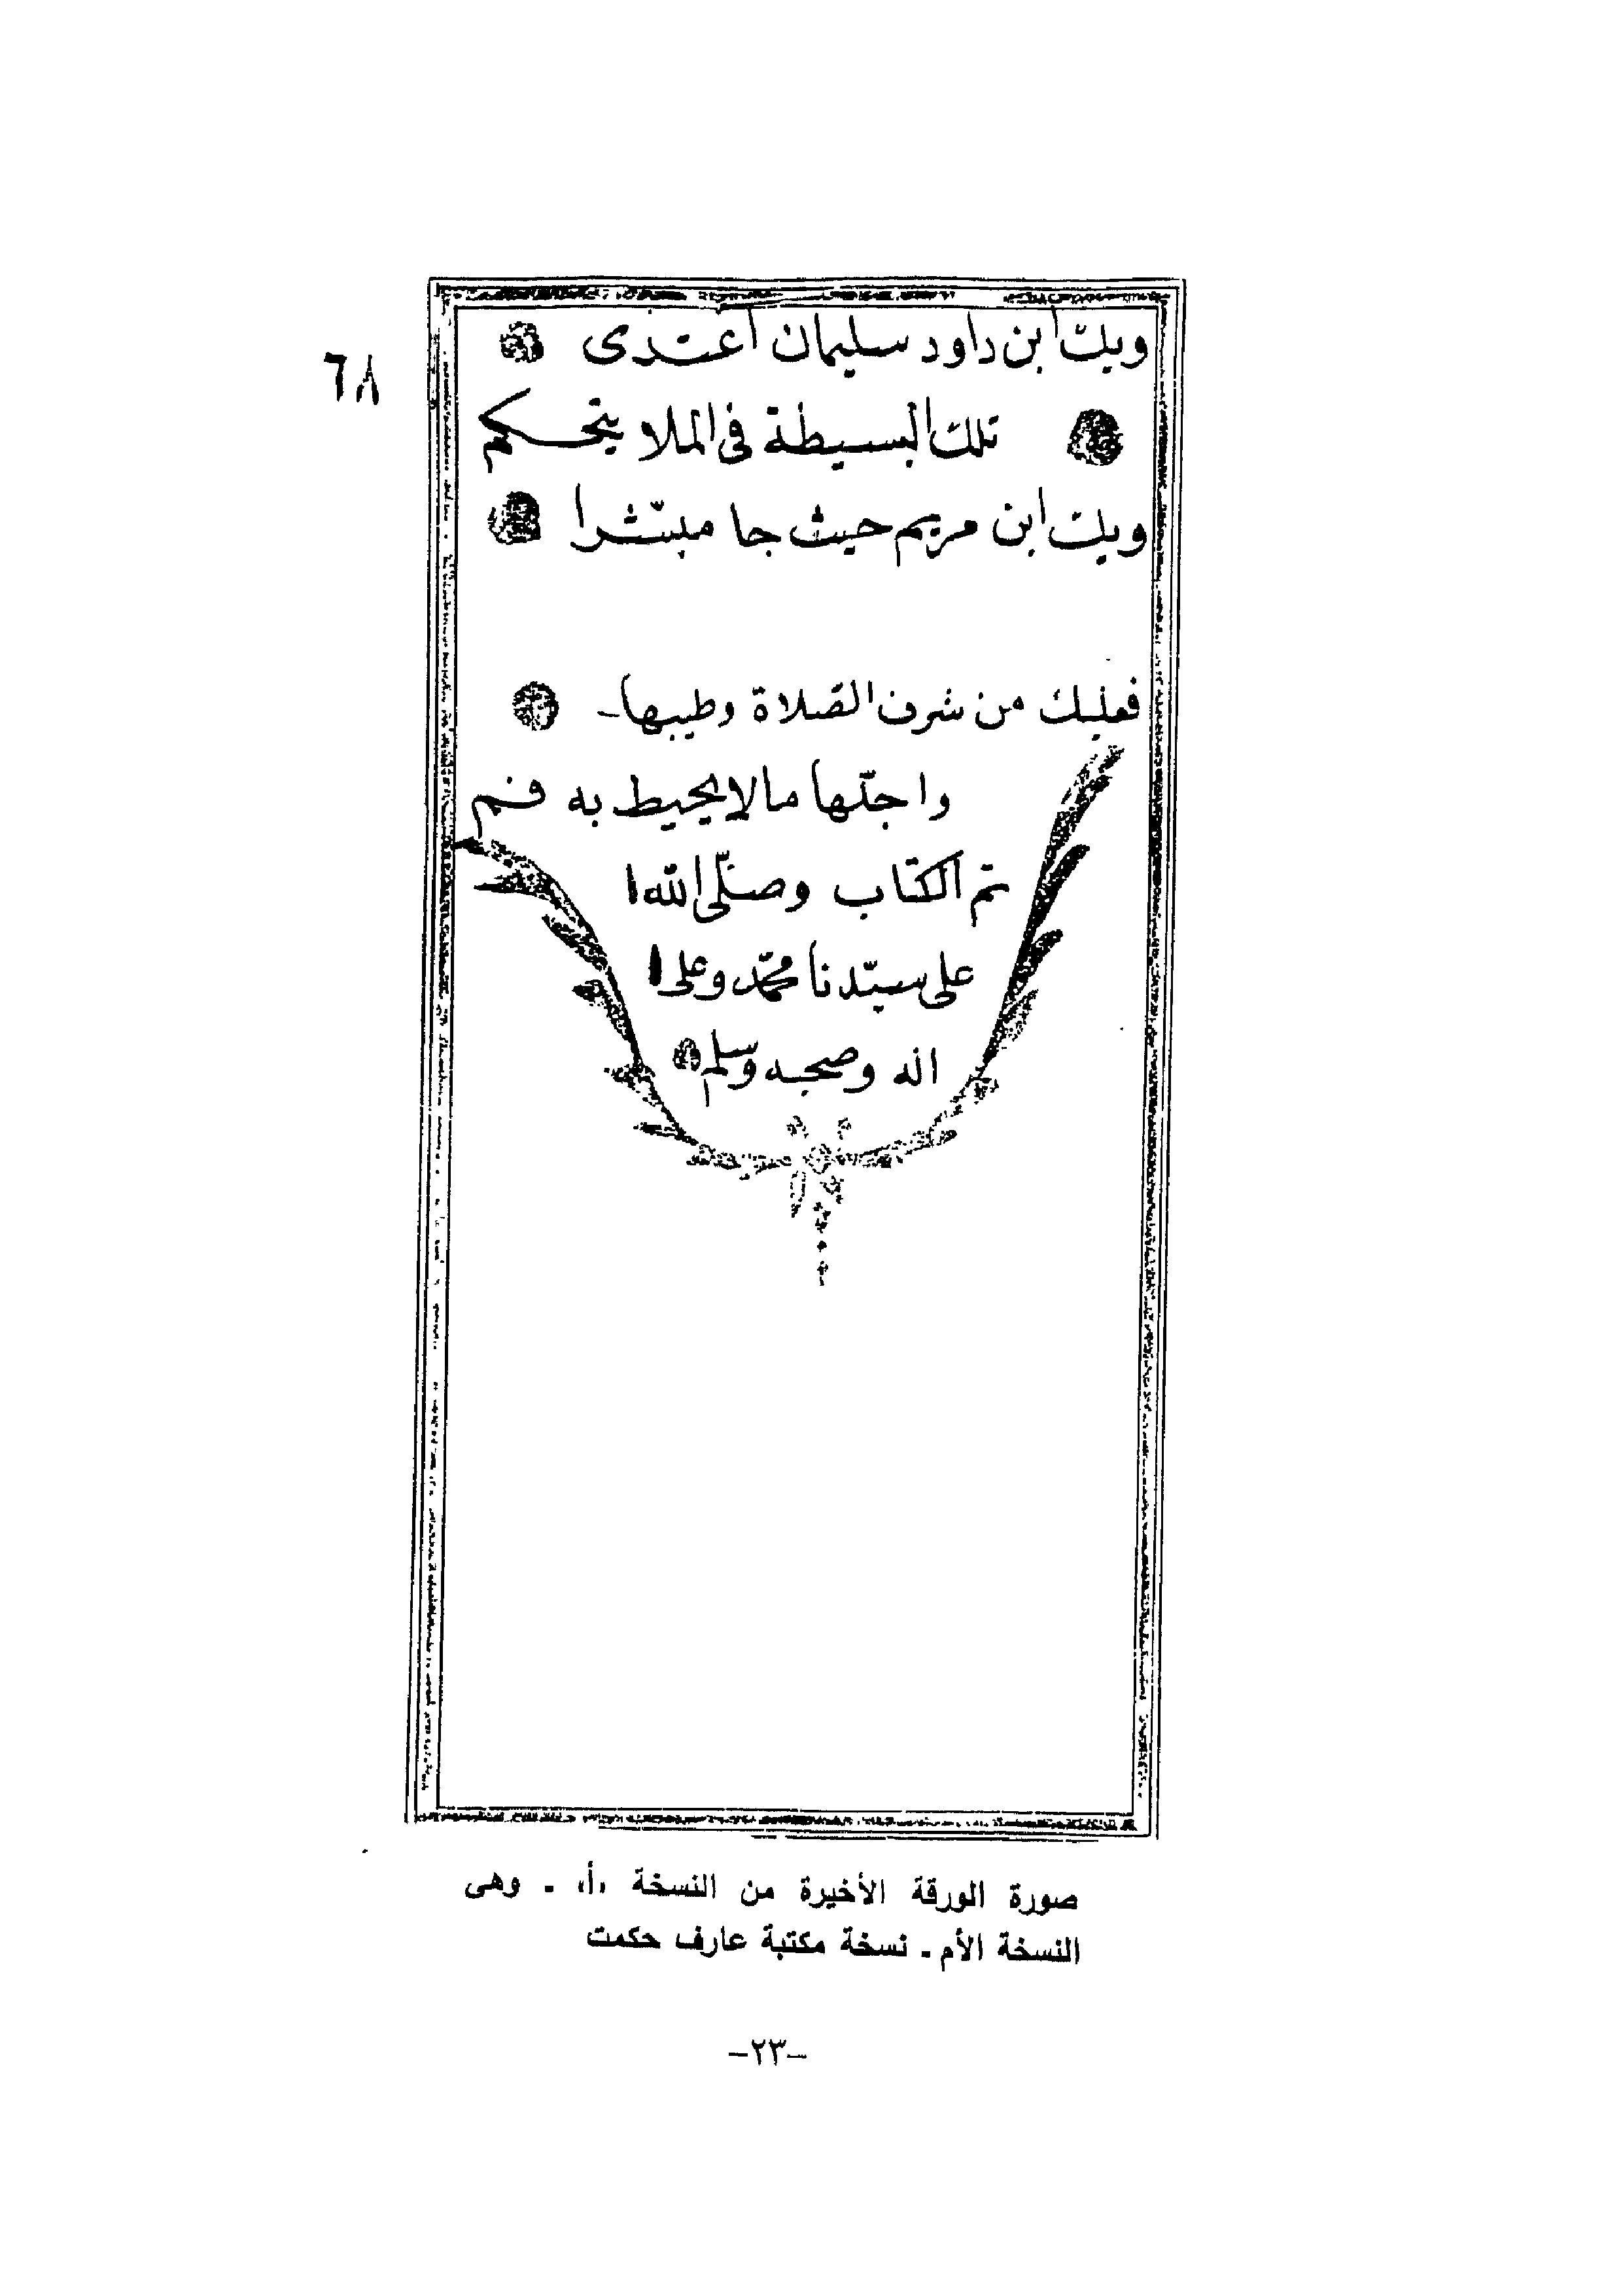 ٦٨
وبك ابن داود سليمان اعتدى
تلك البسيطة فى الملا يتحكم
وبك ابن مريم حيث جا مبشّرا
فعليك من شرف الصّلاة وطيبها
واجلّها مالا يحيط به فم
تم الكتاب وصلّى الله
على سيّدنا محمّد وعلى
اله وصحبه وسلم
صورة الورقة الأخيرة من النسخة «أ» - وهى
النسخة الأم - نسخة مكتبة عارف حكمت
-٢٣-